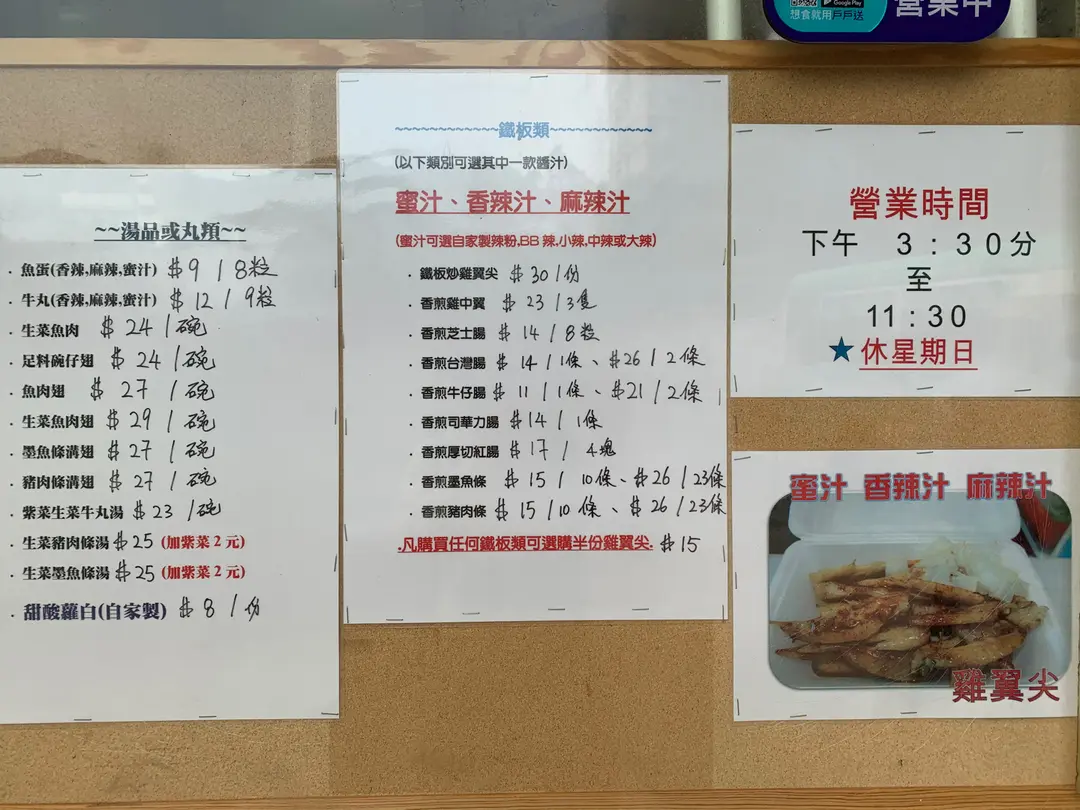 Google Play
想食就用戶戶送
營業中
~~湯品或丸類~~
· 魚蛋(香辣,麻辣,蜜汁) $9 / 8粒
· 牛丸(香辣,麻辣,蜜汁) $12 / 9粒
· 生菜魚肉 $24 / 碗
· 足料碗仔翅 $24 / 碗
· 魚肉翅 $27 / 碗
· 生菜魚肉翅 $29 / 碗
· 墨魚條溝翅 $27 / 碗
· 豬肉條溝翅 $27 / 碗
· 紫菜生菜牛丸湯 $23 / 碗
· 生菜豬肉條湯 $25 (加紫菜2元)
· 生菜墨魚條湯 $25 (加紫菜2元)
· 甜酸蘿白(自家製) $8 / 份
~~~~~~~~~~~~鐵板類~~~~~~~~~~~~
(以下類別可選其中一款醬汁)
蜜汁、香辣汁、麻辣汁
(蜜汁可選自家製辣粉,BB辣,小辣,中辣或大辣)
· 鐵板炒雞翼尖 $30 / 份
· 香煎雞中翼 $23 / 3隻
· 香煎芝士腸 $14 / 8粒
· 香煎台灣腸 $14 / 1條、$26 / 2條
· 香煎牛仔腸 $11 / 1條、$21 / 2條
· 香煎司華力腸 $14 / 1條
· 香煎厚切紅腸 $17 / 4塊
· 香煎墨魚條 $15 / 10條、$26 / 23條
· 香煎豬肉條 $15 / 10條、$26 / 23條
.凡購買任何鐵板類可選購半份雞翼尖. $15
營業時間
下午 3:30分
至
11:30
★休星期日
蜜汁 香辣汁 麻辣汁
雞翼尖